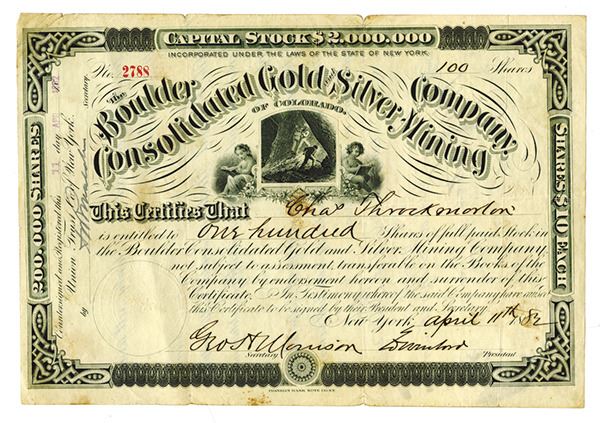 CAPITAL STOCK $2,000,000
INCORPORATED UNDER THE LAWS OF THE STATE OF NEW YORK.
No. 2788
100 Shares
The Boulder Company
Consolidated Gold and Silver Mining
OF COLORADO.
This Certifies That Chas Throckmorton
is entitled to One hundred Shares of full paid Stock in
the Boulder Consolidated Gold and Silver Mining Company
not subject to assessment, transferable on the Books of the
Company by endorsement hereon and surrender of this
Certificate. In Testimony whereof the said Company have caused
this Certificate to be signed by their President and Secretary
New York, April 11th 1882
Geo H Morrison
Secretary
President
200,000 SHARES
SHARES $10 EACH
Countersigned and Registered this 11 day
Union of New York.
by Secretary.